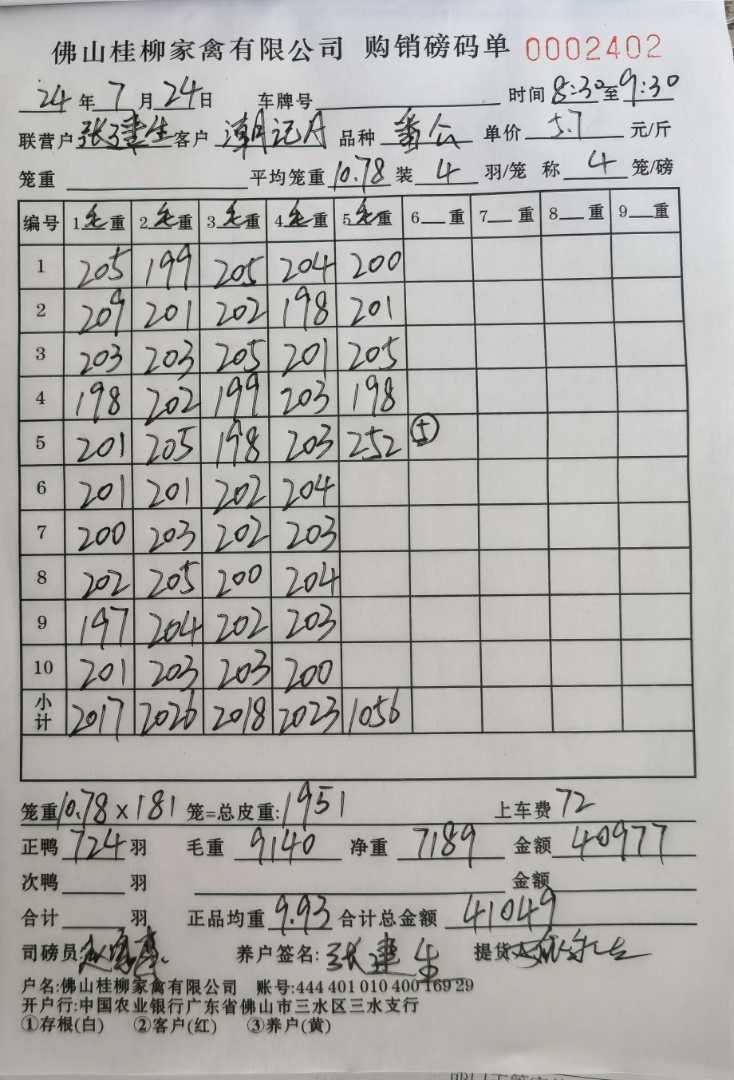 佛山桂柳家禽有限公司 购销磅码单 0002402
24年7月24日 车牌号 时间8:30至9:30
联营户张建生客户潮记A 品种番公 单价5.7元/斤
笼重 平均笼重10.78装4羽/笼 称4笼/磅
编号 1毛重 2毛重 3毛重 4毛重 5毛重 6重 7重 8重 9重
1 205 199 205 204 200
2 209 201 202 198 201
3 203 203 205 201 205
4 198 202 199 203 198
5 201 205 198 203 252 ⑤
6 201 201 202 204
7 200 203 202 203
8 202 205 200 204
9 197 204 202 203
10 201 203 203 200
小计 2017 2026 2018 2023 1056
笼重10.78×181笼=总皮重:1951 上车费72
正鸭724羽 毛重9140 净重7189 金额40977
次鸭 羽 金额
合计 羽 正品均重9.93 合计总金额41049
司磅员: 养户签名:张建生 提货
户名:佛山桂柳家禽有限公司 账号:444 401 010 400 169 29
开户行:中国农业银行广东省佛山市三水区三水支行
①存根(白) ②客户(红) ③养户(黄)